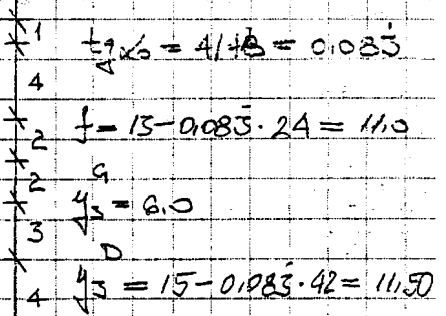 1
tgα₀ = 4/48 = 0.083̇
4
f = 13 - 0.083̇ · 24 = 11.0
2
G
2
y₃ = 6.0
3
D
4
y₃ = 15 - 0.083̇ · 42 = 11.50